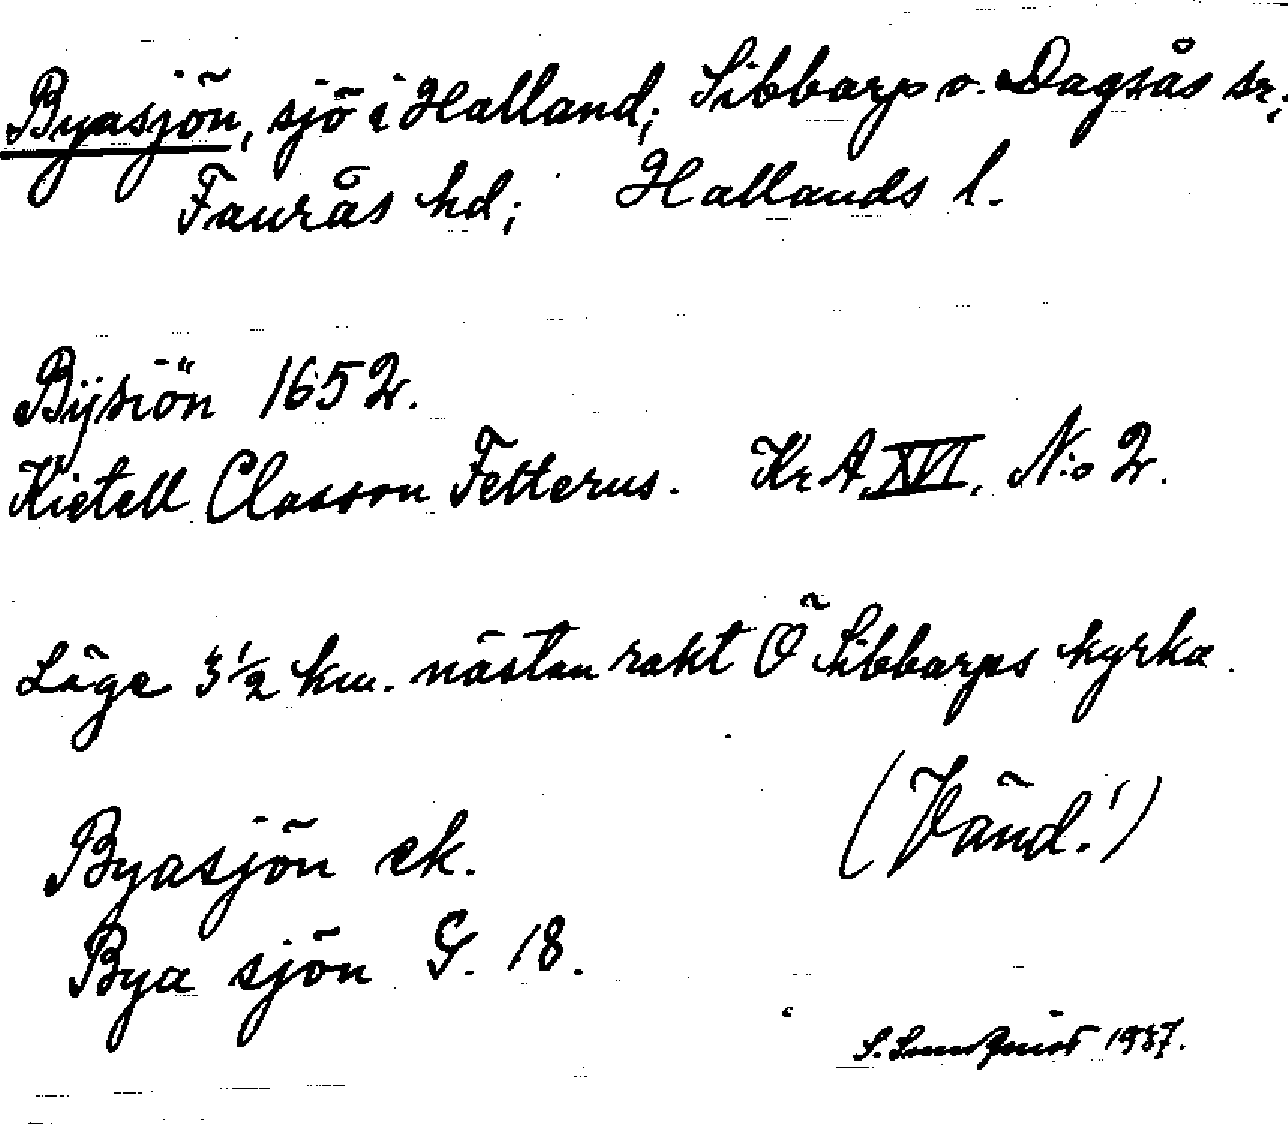 Byasjön, sjö i Halland; Sibbarp o. Dagsås sr;
Faurås hd; Hallands l.
Bÿsiön 1652.
Kietell Classon Felterus. Kr A, XVI, N:o 2.
Läge 3½ km. nästan rakt Ö Sibbarps kyrka.
(Vänd!)
Byasjön ek.
Bya sjön G. 18.
S. Lundquist 1937.